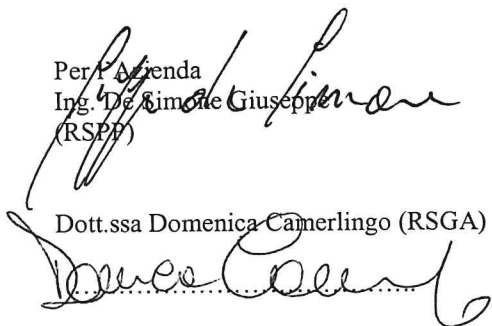 Per l'Azienda
Ing. De Simone Giuseppe
(RSPP)
Dott.ssa Domenica Camerlingo (RSGA)